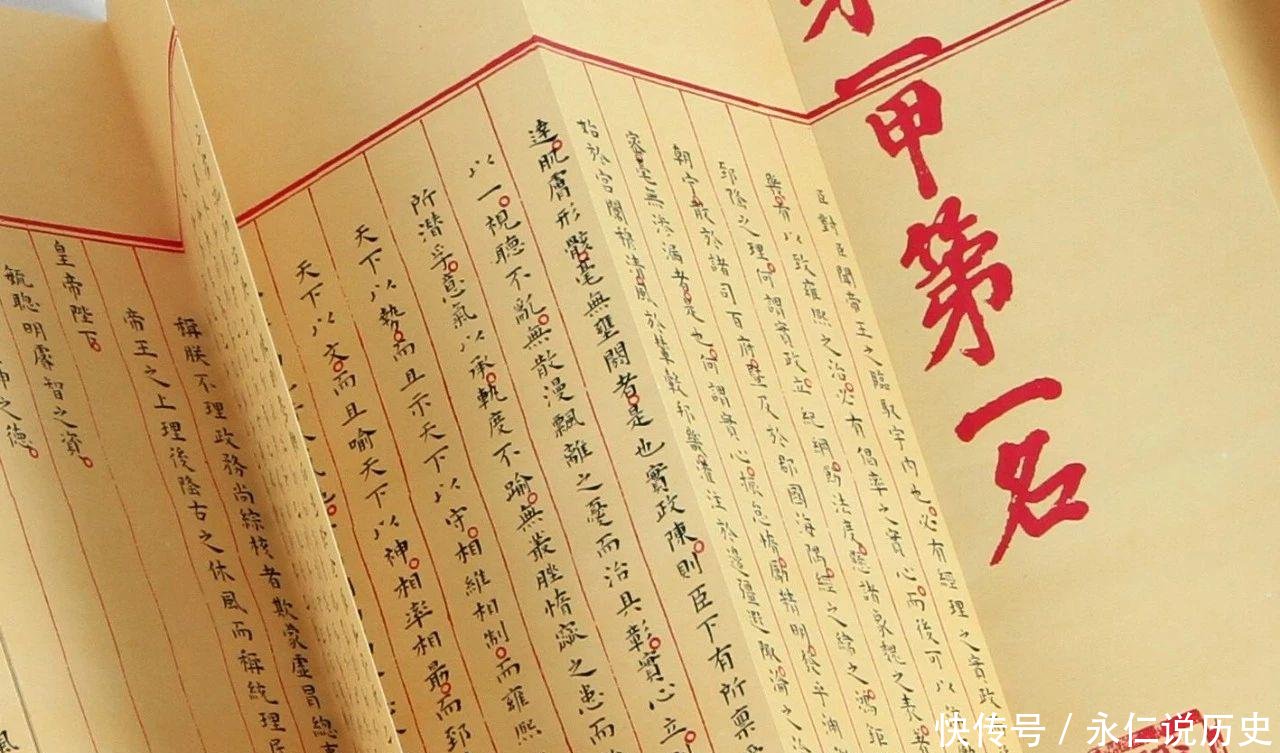 第一甲第一名
臣對臣聞帝王之臨馭宇內也必有經理之實政
有以致雍熙之治必有倡率之實心而後可以
郅隆之理何謂實政立紀綱飭法度懸諸象魏之表
朝宁散於諸司百府暨及於郡國海隅經之緯之鴻鉅
密毫無滲漏者是也何謂實心振怠惰勵精明發乎淵
始於宮闈穆清風於輦轂邦畿灌注於邊疆遐陬淪之
達肌膚形骸毫無壅閼者是也實政陳則臣下有所稟
以一視聽不亂無散漫飄離之憂而治具彰實心立
所潛孚意氣以承軌度不踰無叢脞惰窳之患而
天下以勢而且示天下以守相維相制而雍熙
天下以文而且喻天下以神相率相勗而郅
稱朕不理政務尚綜核者欺蒙虛冒總
帝王之上理後隆古之休風而稱統理
皇帝陛下
毓聰明睿智之資
神之德
快传号 / 永仁说历史